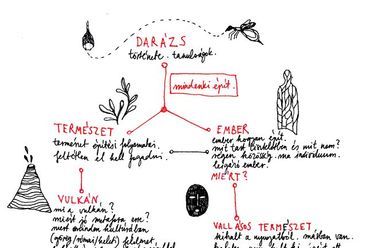 DARÁZS
története. tanulságok.
mindenki épít.
TERMÉSZET
természet építési folyamatai.
feltétlen el kell fogadni.
EMBER
ember hogyan épít
mit tart érdekében és mit nem?
régen közösség. ma individuum.
leigázó ember.
MIÉRT?
VULKÁN
mi a vulkán?
miért jó metafora erre?
mert minden kultúrában
(görög/római/kelet)
VALLÁSOS TERMÉSZET
kihalt a nyugatból. máshol van.